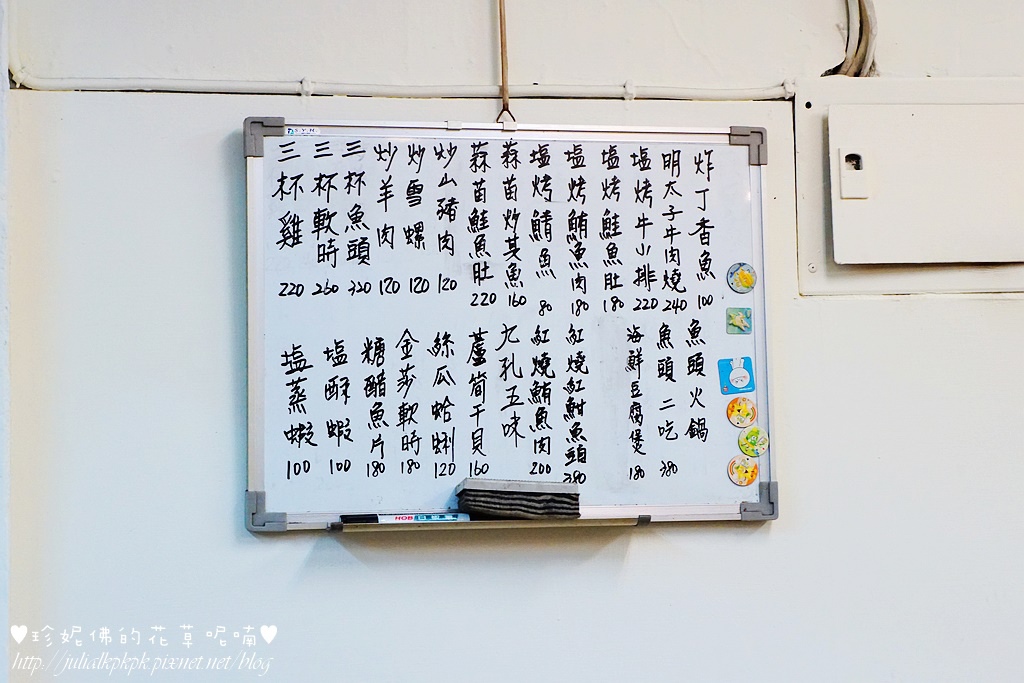 S.Y.H
炸丁香魚 100
明太子牛肉燒 240
塩烤牛小排 220
塩烤鮭魚肚 180
塩烤鮪魚肉 180
塩烤鯖魚 80
蒜苗炒其魚 160
蒜苗鮭魚肚 220
炒山豬肉 120
炒雪螺 120
炒羊肉 120
三杯魚頭 320
三杯軟時 260
三杯雞 220
魚頭火鍋
魚頭二吃 380
海鮮豆腐煲 180
紅燒紅魽魚頭 380
紅燒鮪魚肉 200
九孔五味
蘆筍干貝 160
絲瓜蛤蜊 120
金莎軟時 180
糖醋魚片 180
塩酥蝦 100
塩蒸蝦 100
♥珍妮佛的花草呢喃♥
http://julidkpkpk.pixnet.net/blog